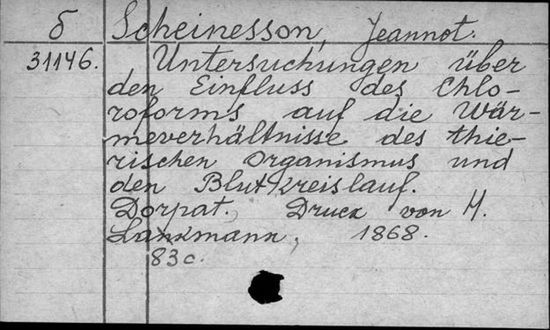 б Scheinesson, Jeannot.
31146. Untersuchungen über
den Einfluss des Chlo-
roforms auf die Wär-
meverhältnisse des thie-
rischen Organismus und
den Blutkreislauf.
Dorpat, Druck von H.
Laakmann, 1868.
83 с.